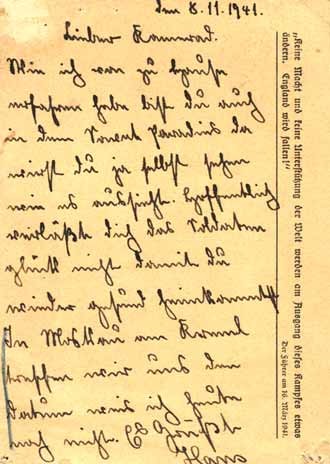 Den 8.11.1941.
Lieber Kamerad.
Wie ich von zu Hause
erfahren habe bist du auch
in dem Sowjet Paradies da
wirst du ja selbst sehen
wie es aussieht. Hoffentlich
verläßt dich das Soldaten
glück nicht damit du
wieder gesund heimkommst
In Moskau am Kreml
treffen wir uns den
Datum weis ich heute
noch nicht. Es Grüßt
Hans
„Keine Macht und keine Unterstützung der Welt werden am Ausgang dieses Kampfes etwas
ändern. England wird fallen!“
Der Führer am 16. März 1941.